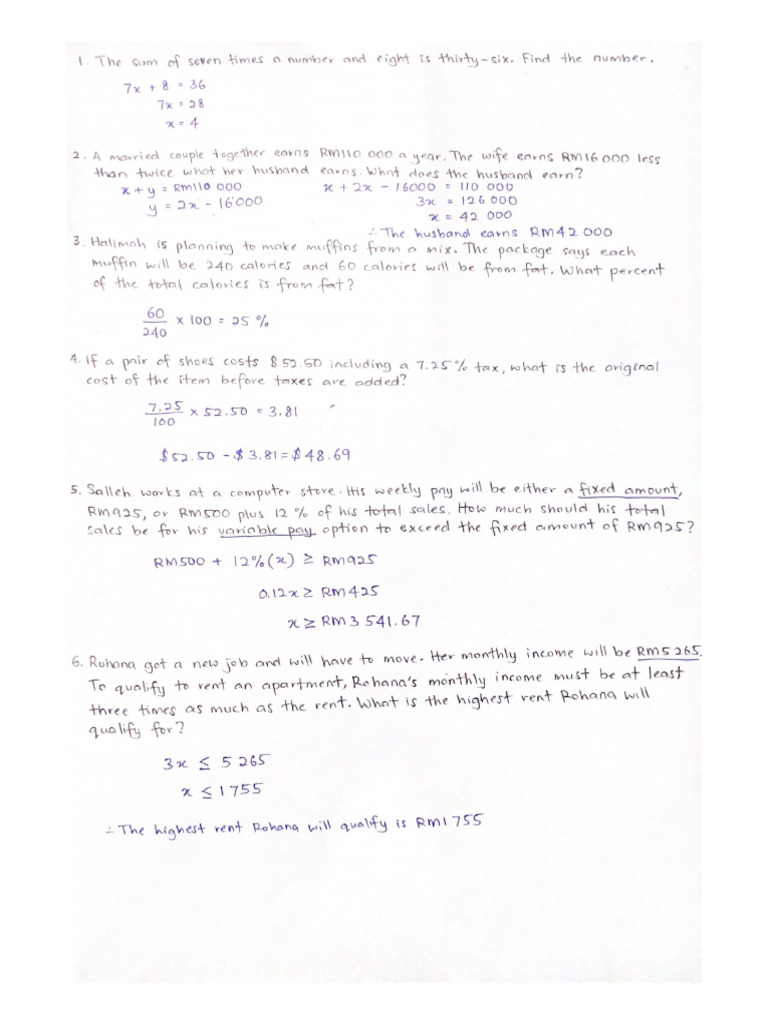 1. The sum of seven times a number and eight is thirty-six. Find the number.
7x + 8 = 36
7x = 28
x = 4
2. A married couple together earns RM110 000 a year. The wife earns RM16 000 less
than twice what her husband earns. What does the husband earn?
x + y = RM110 000 x + 2x - 16000 = 110 000
y = 2x - 16000 3x = 126 000
x = 42 000
∴ The husband earns RM42 000
3. Halimah is planning to make muffins from a mix. The package says each
muffin will be 240 calories and 60 calories will be from fat. What percent
of the total calories is from fat?
60/240 x 100 = 25 %
4. If a pair of shoes costs $52.50 including a 7.25% tax, what is the original
cost of the item before taxes are added?
7.25/100 x 52.50 = 3.81
$52.50 - $3.81 = $48.69
5. Salleh works at a computer store. His weekly pay will be either a fixed amount,
RM925, or RM500 plus 12 % of his total sales. How much should his total
sales be for his variable pay option to exceed the fixed amount of RM925?
RM500 + 12%(x) ≥ RM925
0.12x ≥ RM425
x ≥ RM3 541.67
6. Rohana got a new job and will have to move. Her monthly income will be RM5 265.
To qualify to rent an apartment, Rohana's monthly income must be at least
three times as much as the rent. What is the highest rent Rohana will
qualify for?
3x ≤ 5 265
x ≤ 1755
∴ The highest rent Rohana will qualify is RM1755